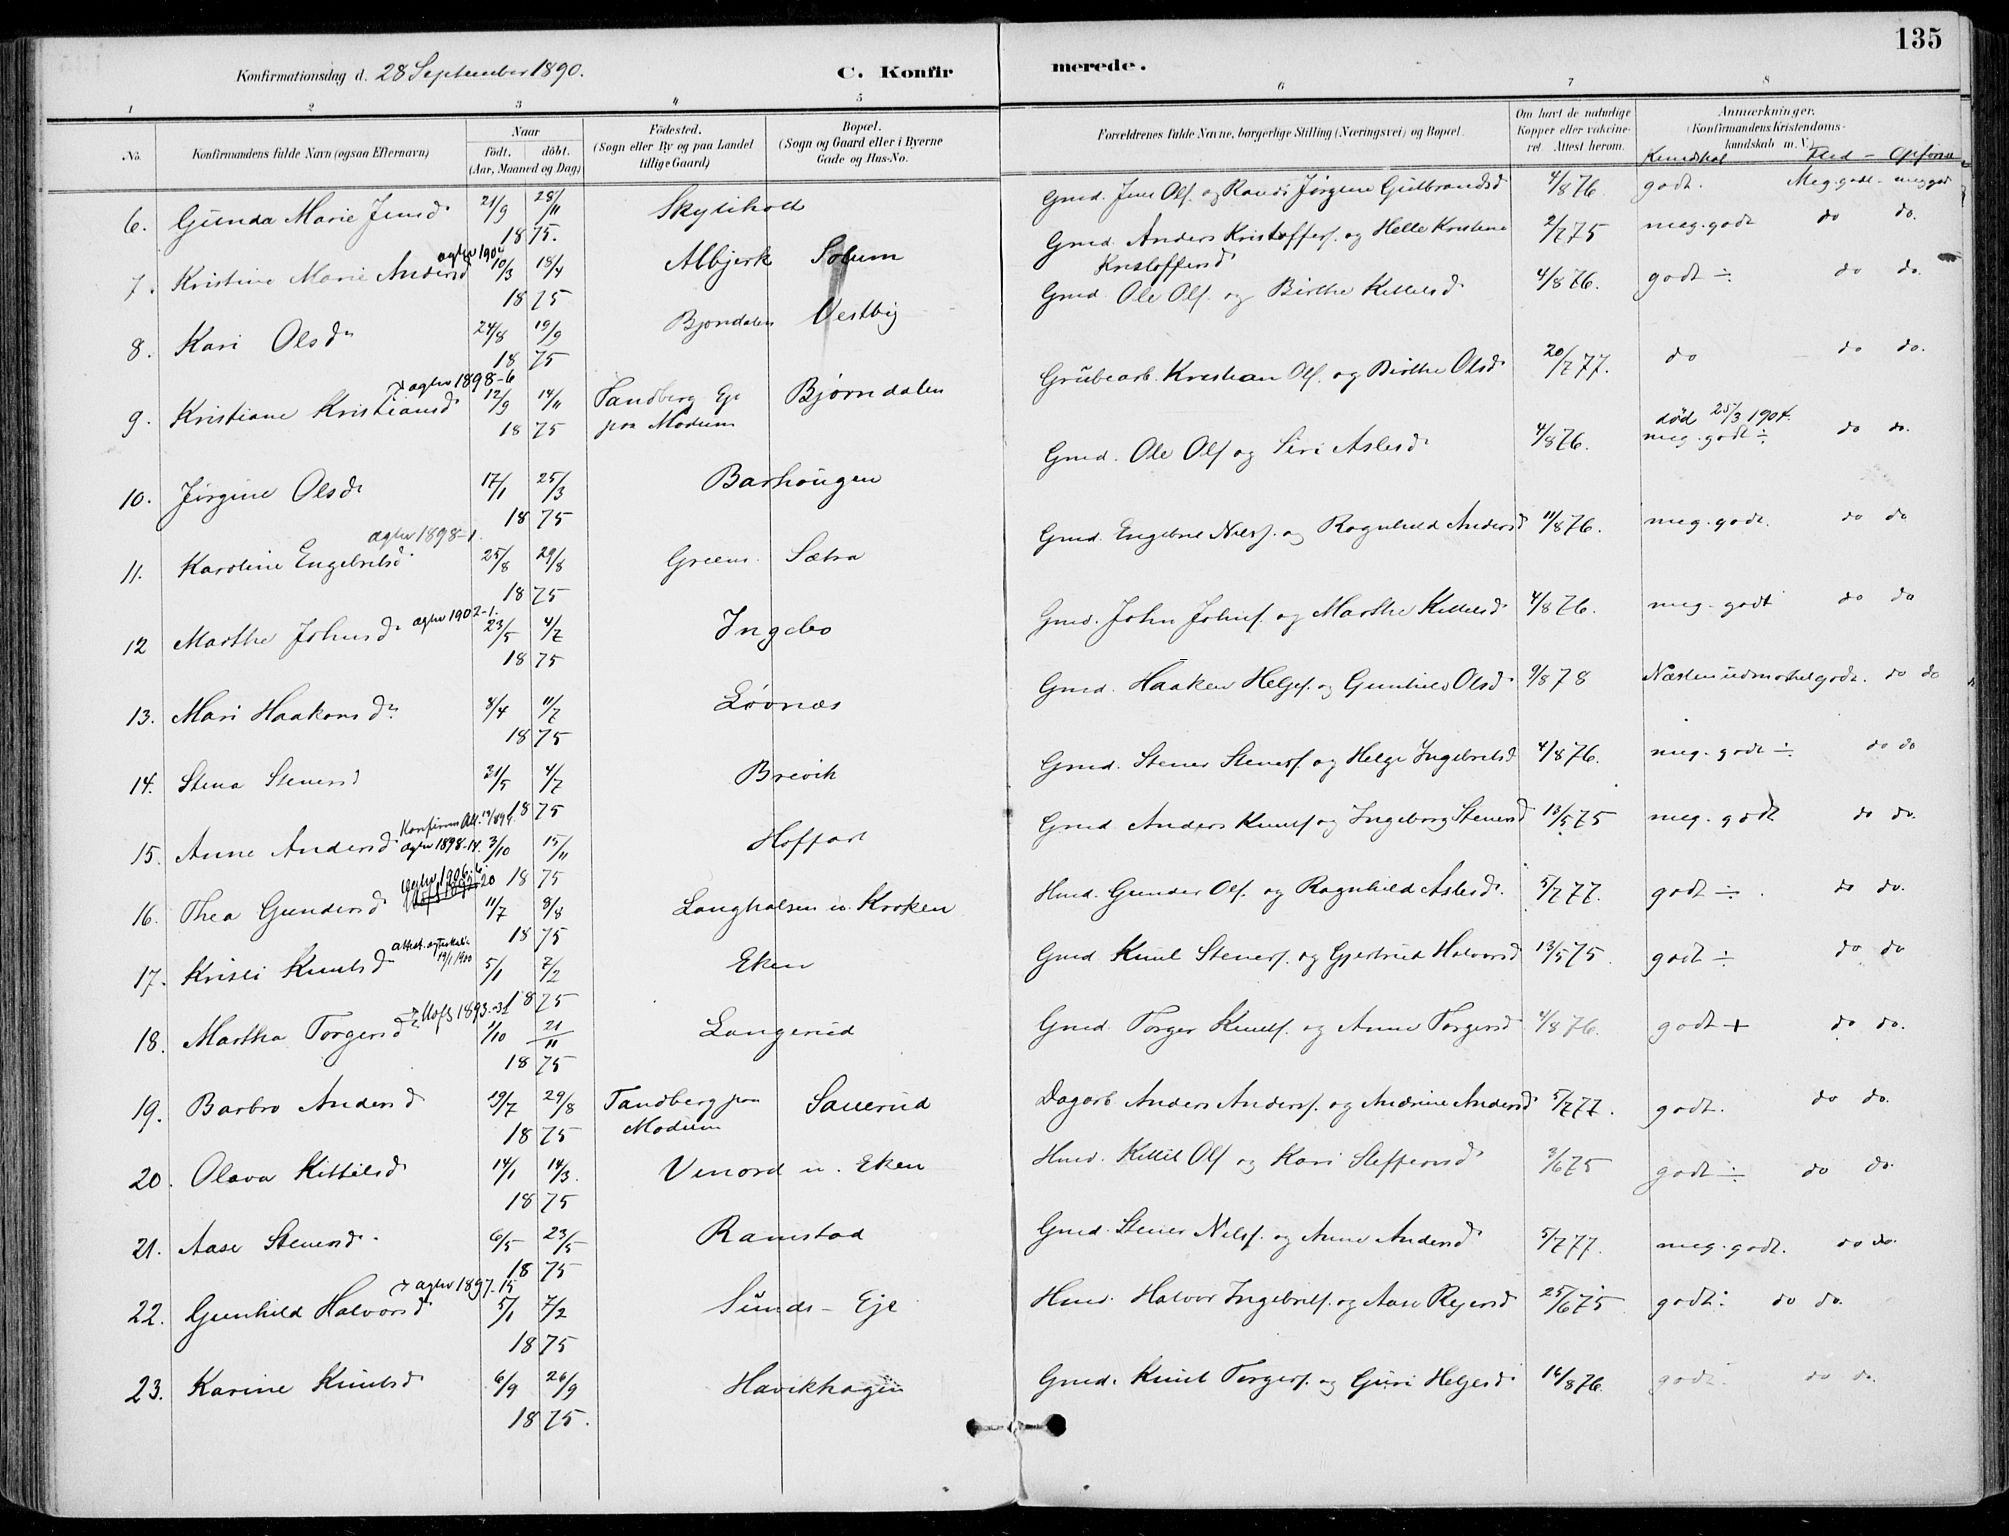 135
Konfirmationsdag d. 28 September 1890.
C. Konfirmerede.
1 2 3 4 5 6 7 8
No. Konfirmandens fulde Navn (ogsaa Efternavn)
Naar født. døbt. (Aar, Maaned og Dag)
Fødested. (Sogn eller By og paa Landet tillige Gaard)
Bopæl. (Sogn og Gaard eller i Byerne Gade og Hus-No.
Forældrenes fulde Navne, borgerlige Stilling (Næringsvei) og Bopæl.
Om havt de naturlige Kopper eller vakcineret. Attest herom.
Anmærkninger. (Konfirmandens Kristendomskundskab m. V.)
Kundskab Flid - Opførsel
6. Gunda Marie Jensd. 21/9 28/11 1875. Skytiholt Gmd. Jens Ols. og Randi Jørgine Gulbrandsd 4/8 76 godt. Meg. godt - meg godt
7. Kristine Marie Andersd 10/3 18/4 1875 Albjerk Solum Gmd. Anders Kristoffers. og Helle Kristine Kristoffersd 2/7 75 meg. godt do do.
8. Kari Olsdr 24/8 19/9 1875 Bjøndalen Vestby Gmd. Ole Ols. og Birthe Kittelsd 4/8 76. godt ÷ do do.
aghv 1898-6
9. Kristiane Kristiansd 12/9 14/11 1875 Tandberg Eje paa Modum Bjørndalen Grubearb. Kristian Ols. og Birthe Olsd 20/7 77. do do do.
død 25/3 1904.
10. Jørgine Olsd. 17/1 25/3 1875 Barhaugen Gmd. Ole Ols og Siri Aslesd 4/8 76. meg. godt ÷ do do.
aghv 1898-1.
11. Karoline Engebretsd 25/8 29/8 1875 Green Sætra Gmd. Engebret Nils. og Ragnhild Andersd 11/8 76. meg. godt. do do
aghv 1902-1.
12 Marthe Johnsd. 23/5 4/7 1875 Ingebo Gmd. John Johns. og Marthe Kittelsd 4/8 76. meg. godt do do
13. Mari Haakonsd. 8/4 11/7 1875 Løvnæs Gmd. Haaken Helges. og Gunhild Olsd 9/8 78 Næsten udmerket godt. do do
14. Stena Stenersd 21/5 4/7 1875 Brevik Gmd. Stener Steners. og Helge Ingebretsd 4/8 76. meg. godt ÷ do do
aghv 1898-14.
15. Anne Andersd 3/10 15/11 1875 Hoffart Gmd Anders Knuts og Ingeborg Stenersd 13/5 75 meg. godt do do.
aghv 1906-6
16. Thea Gundersd 11/7 8/8 1875 Langhalsen u. Kroken Hmd. Gunder Ols. og Ragnhild Aslesd. 5/7 77. godt ÷ . do do.
17. Kristi Knutsd 5/1 7/2 1875 Eken Gmd Knut Steners. og Gjertrud Halvorsd 13/5 75. godt ÷ do do
Udfl 1893-31
18. Martha Torgersd 1/10 21/11 1875 Langerud Gmd. Torger Knuts. og Anne Torgersd 4/8 76. godt + do do.
19. Barbro Andersd 19/7 29/8 1875 Tandberg paa Modum Sauerud Dagarb. Anders Anders. og Andrine Andersd 5/7 77. godt. do do.
20. Olava Kittilsd. 14/1 14/3. 1875 Venord u. Eken Hmd. Kittil Ols og Kari Steffensd 3/6 75 godt ÷ do do.
21. Aase Stenersd. 6/5 23/5 1875 Ramstad Gmd. Stener Nils. og Anne Andersd 5/7 77. meg. godt. do do.
aghv 1897-15
22. Gunhild Halvorsd 5/1 7/2 1875 Sunds - Eje Hmd. Halvor Ingebrets. og Aase Reiersd 25/6 75 godt: do do.
23. Karine Knutsd 6/9 26/9 1875. Havikhagen Gmd. Knut Torgers. og Guri Helgesd 14/8 76. godt do do.